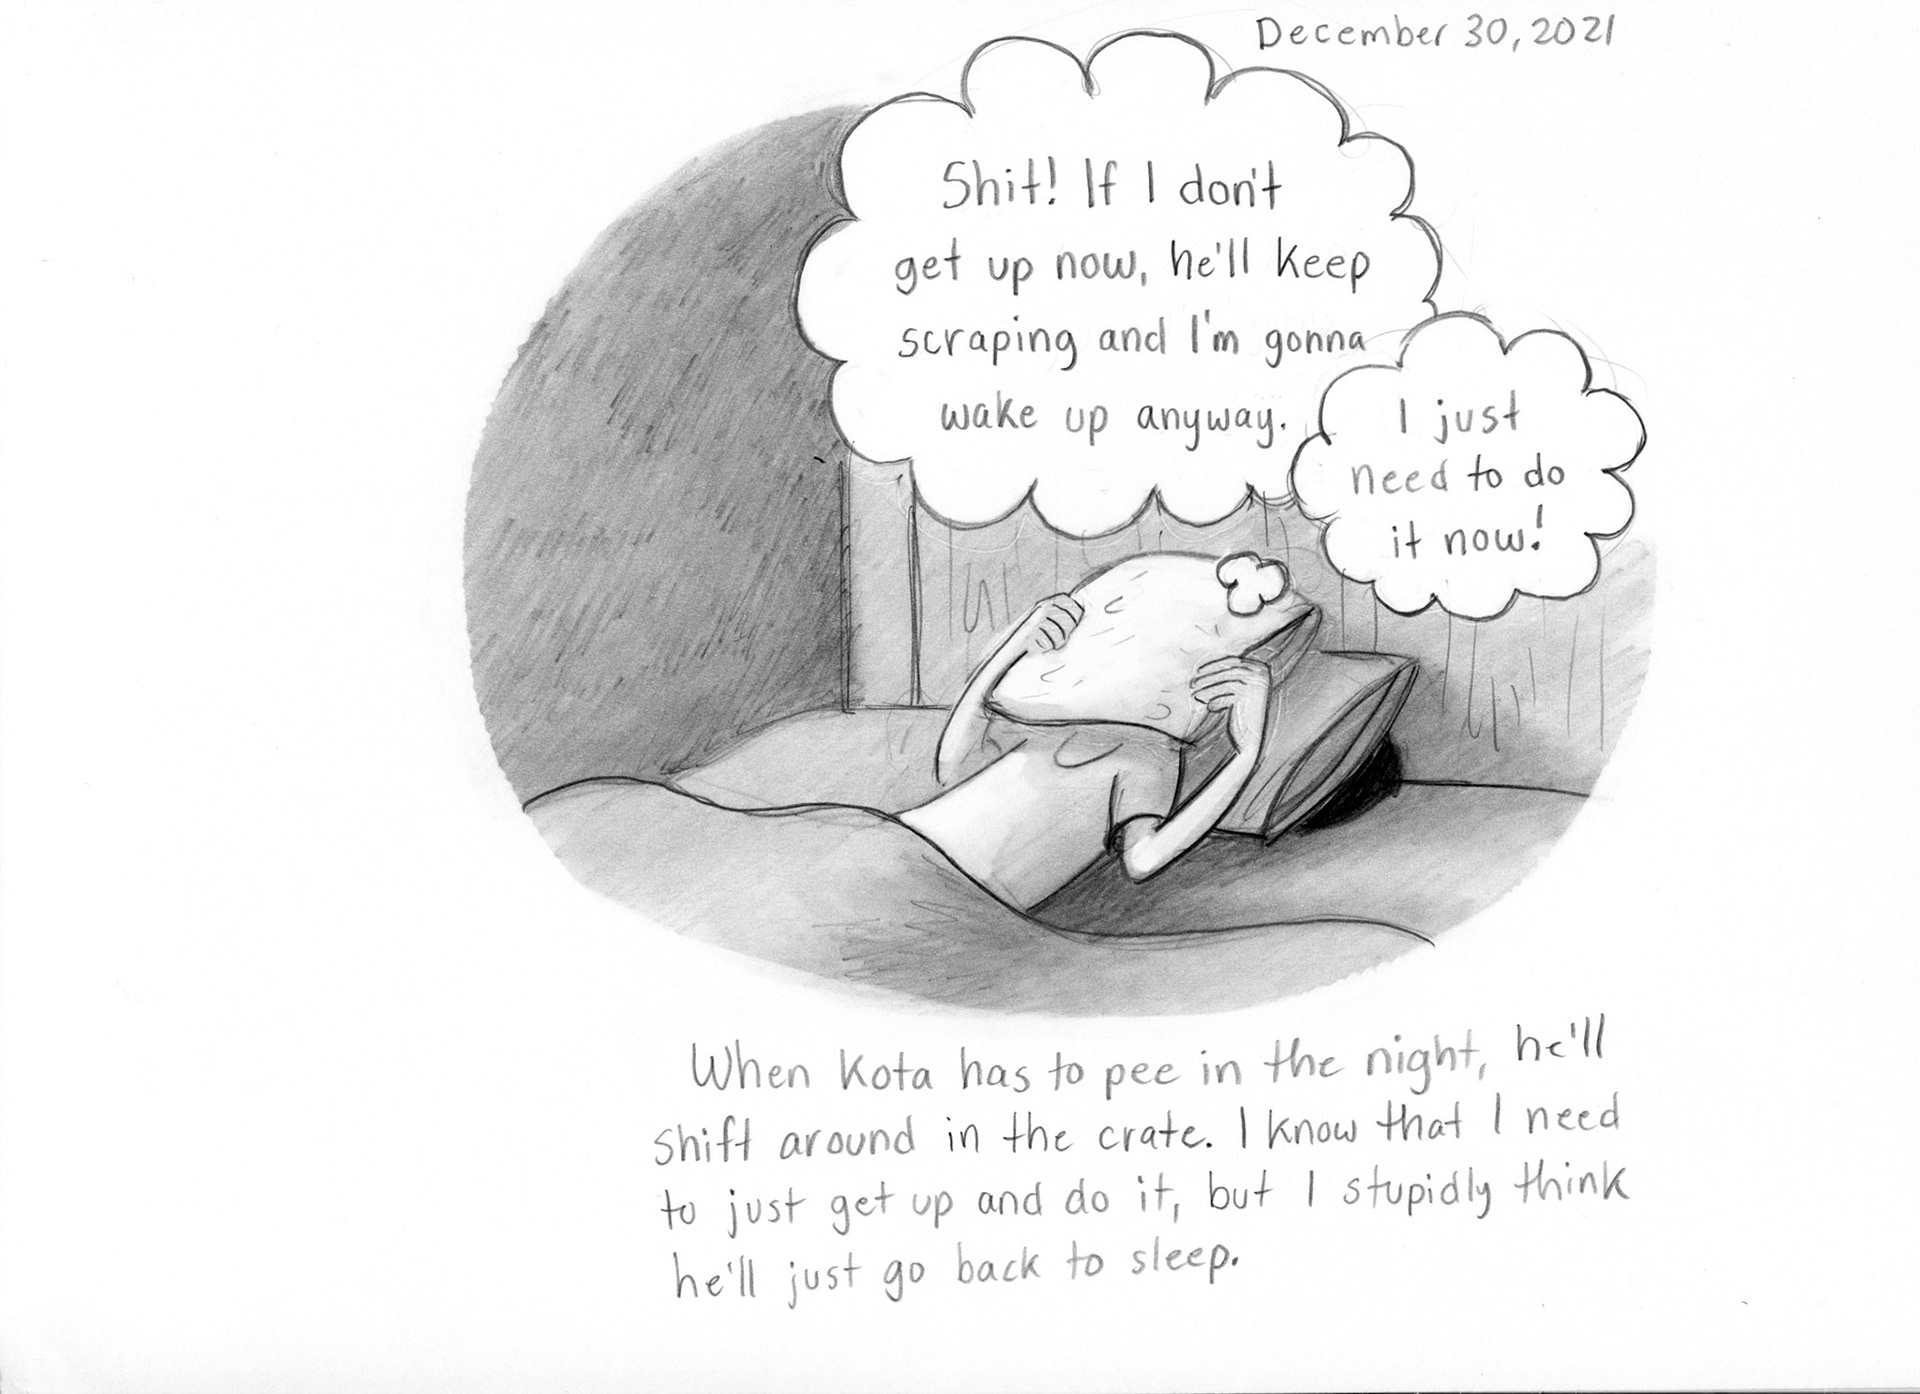 December 30, 2021
Shit! If I don't
get up now, he'll keep
scraping and I'm gonna
wake up anyway.
I just
need to do
it now!
When Kota has to pee in the night, he'll
shift around in the crate. I know that I need
to just get up and do it, but I stupidly think
he'll just go back to sleep.